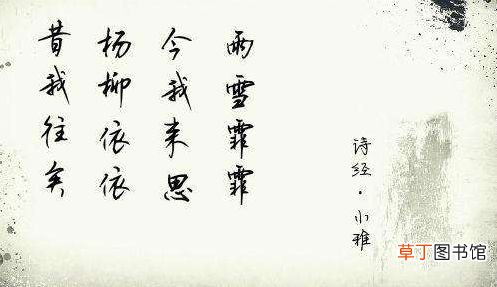 昔我往矣
杨柳依依
今我来思
雨雪霏霏
诗经·小雅
草丁图书馆